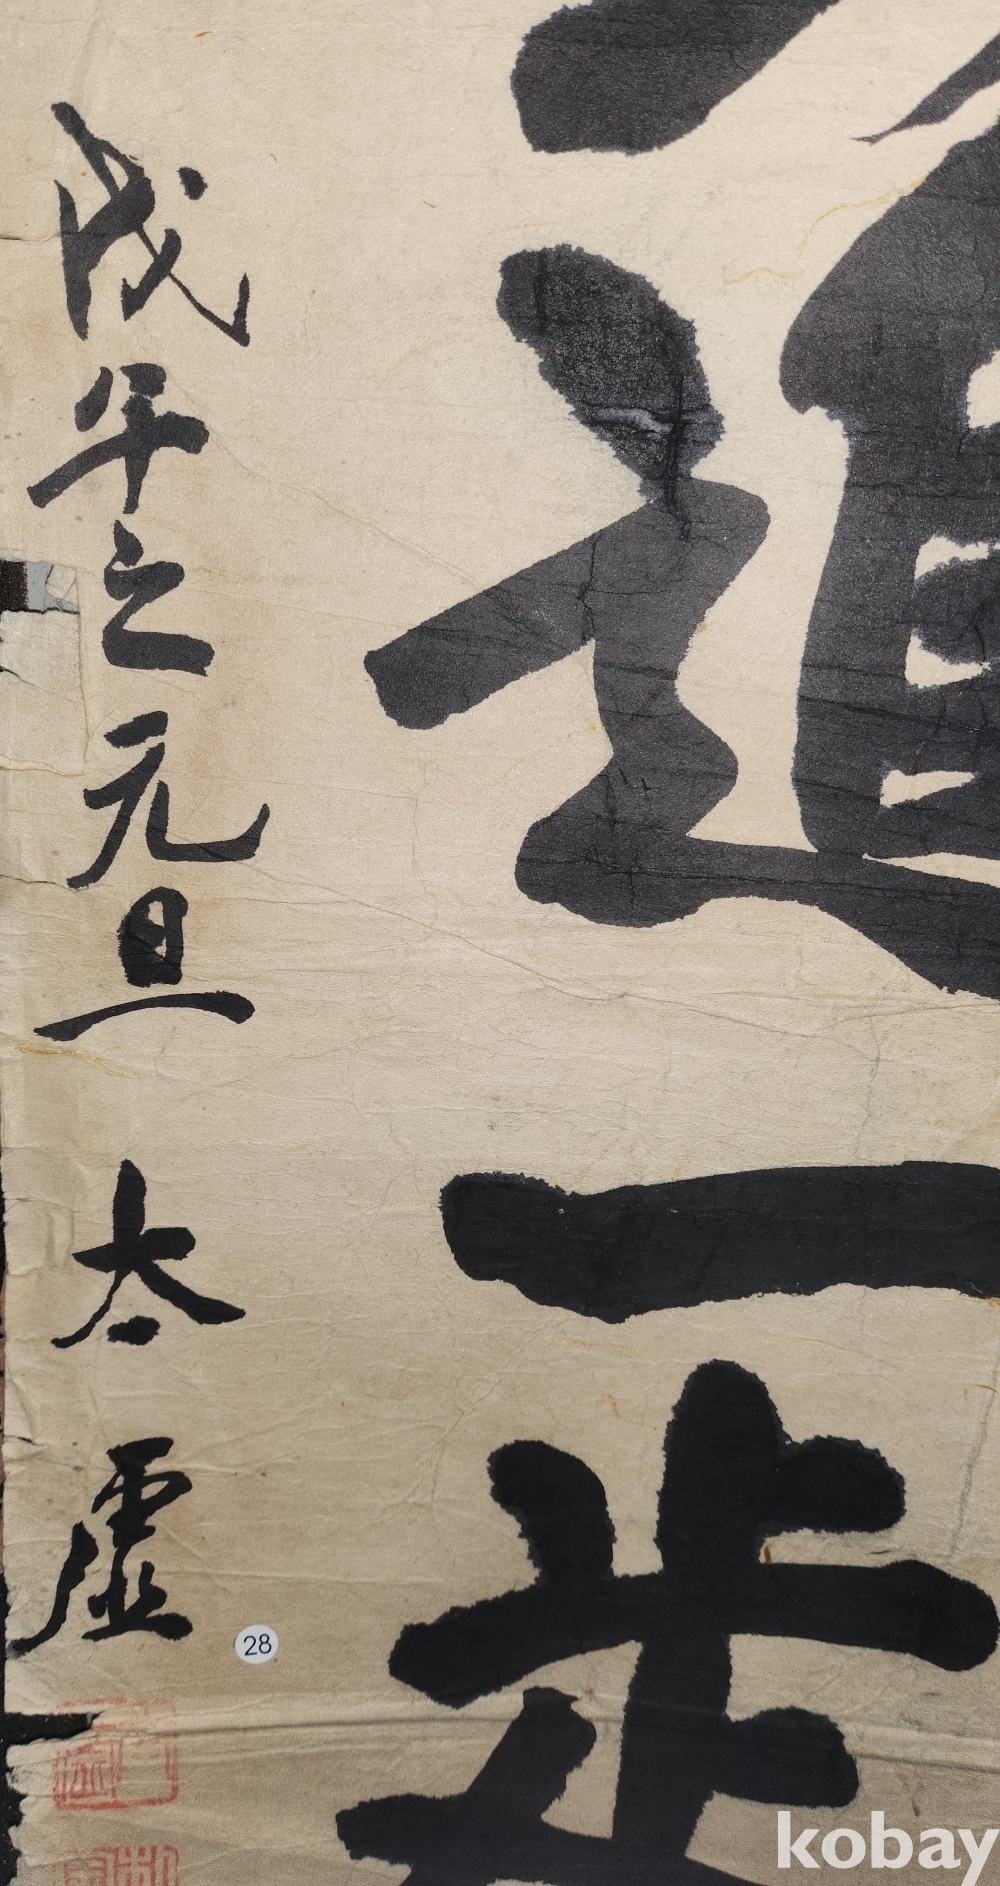 進一步
戊午之元旦 太虛
28
kobay